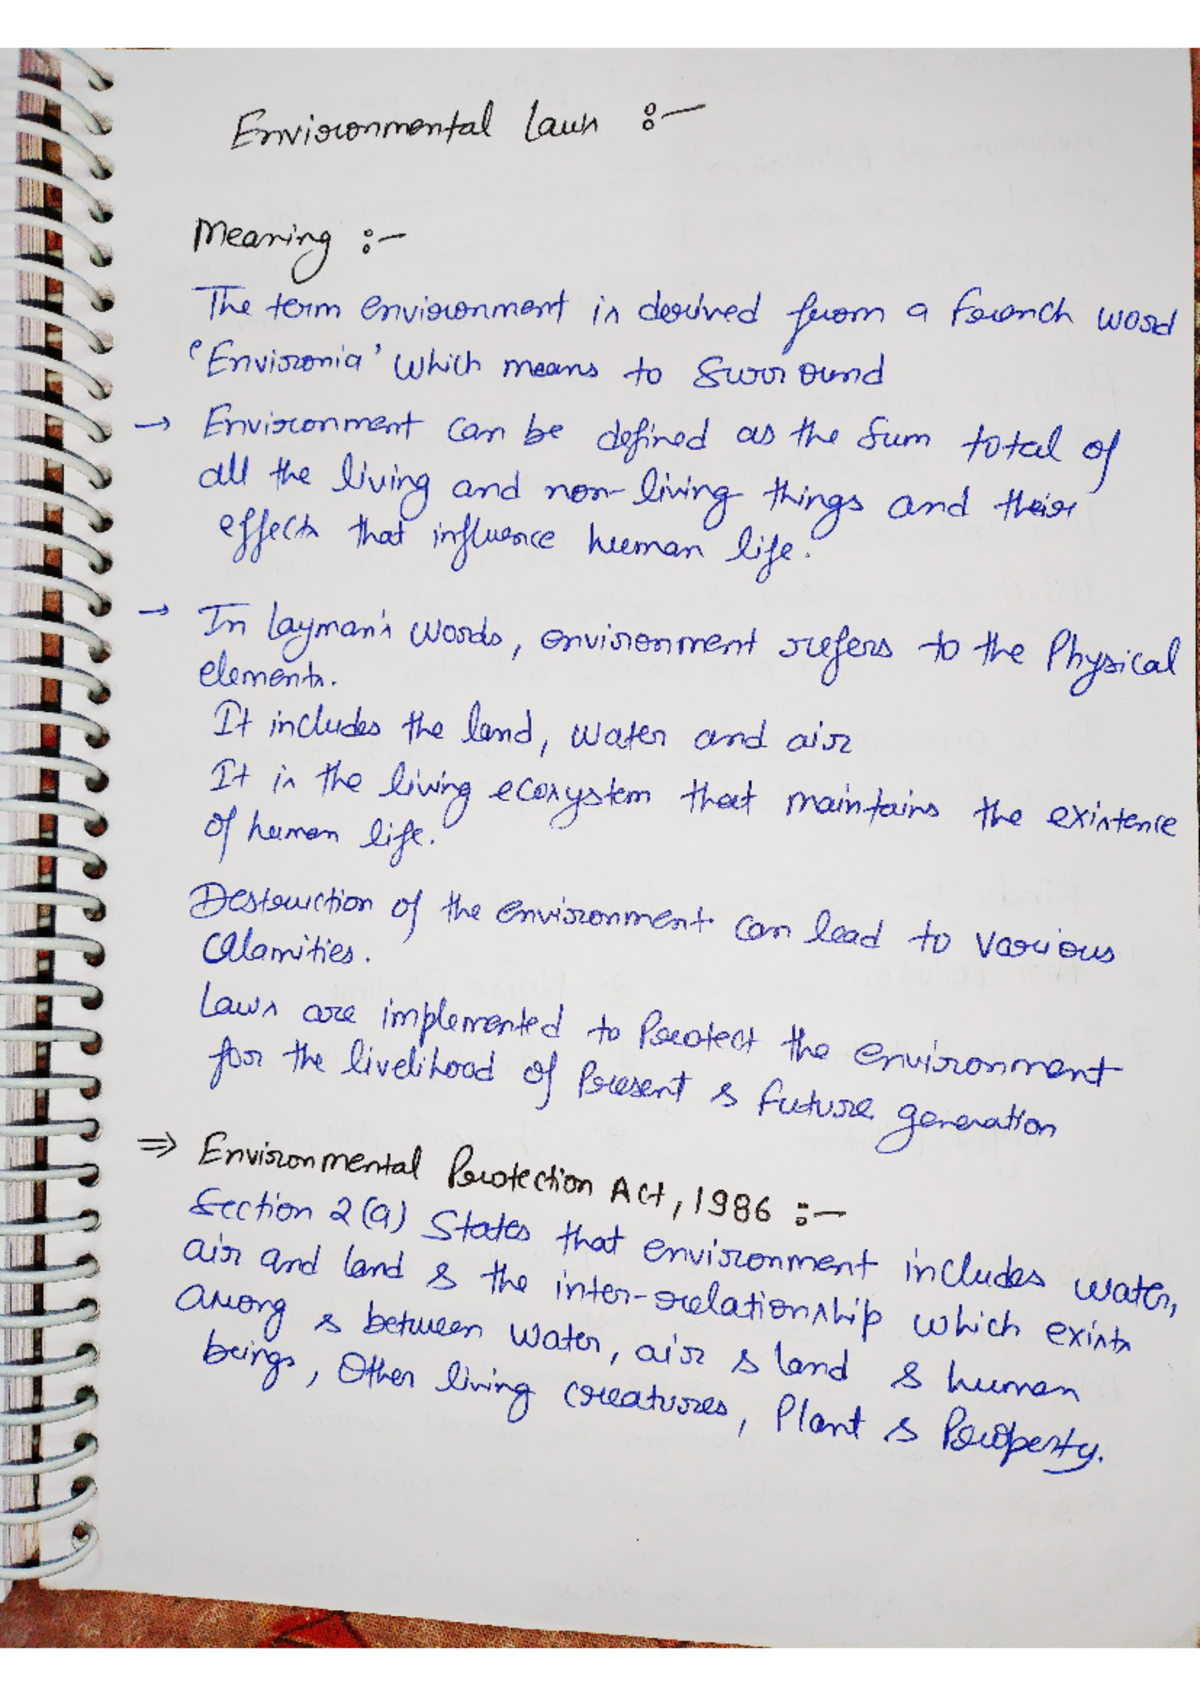 Environmental Laws :-
Meaning :-
The term environment is derived from a French word
'Environia' which means to Surround
→ Environment can be defined as the Sum total of
all the living and non-living things and their
effects that influence human life.
→ In layman's words, environment refers to the Physical
elements.
It includes the land, water and air
It is the living ecosystem that maintains the existence
of human life.
Destruction of the environment can lead to various
Calamities.
Laws are implemented to Protect the environment
for the livelihood of Present & future generation
⇒ Environmental Protection Act, 1986 :-
Section 2(a) States that environment includes water,
air and land & the inter-relationship which exists
among & between water, air & land & human
beings, Other living creatures, Plant & Property.